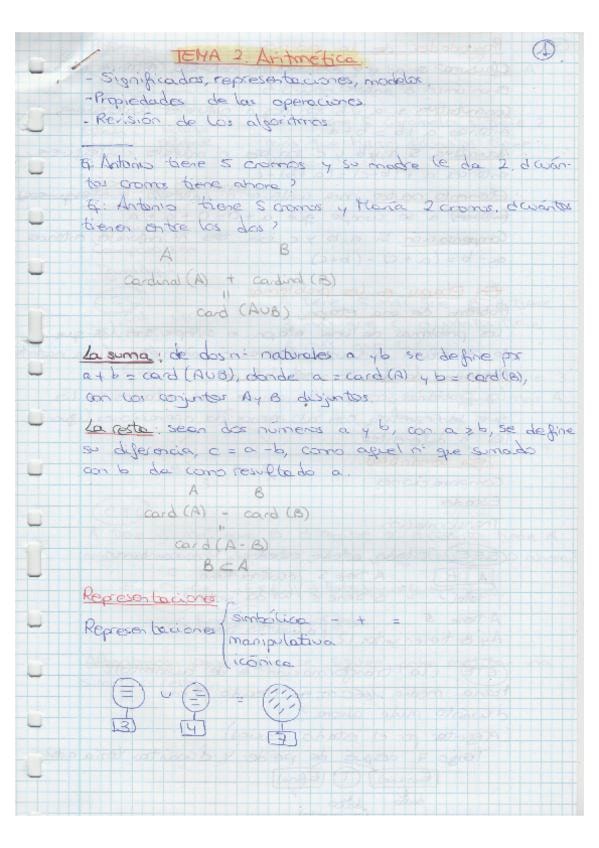 TEMA 2. Aritmética.
1
- Significados, representaciones, modelos.
- Propiedades de las operaciones
- Revisión de los algoritmos.
Ej. Antonio tiene 5 cromos y su madre le da 2. ¿Cuán-
tos cromos tiene ahora?
Ej: Antonio tiene 5 cromos y María 2 cromos. ¿Cuántos
tienen entre los dos?
A B
cardinal (A) + cardinal (B)
=
card (A∪B)
La suma: de dos nº naturales a y b se define por
a + b = card (A∪B), donde a = card (A) y b = card (B),
con los conjuntos A y B disjuntos
La resta: sean dos números a y b, con a ≥ b, se define
su diferencia, c = a - b, como aquel nº que sumado
con b da como resultado a.
A B
card (A) - card (B)
=
card (A - B)
B ⊂ A
Representaciones.
simbólica - + =
Representaciones { manipulativa
icónica
∪ =
3 4 7